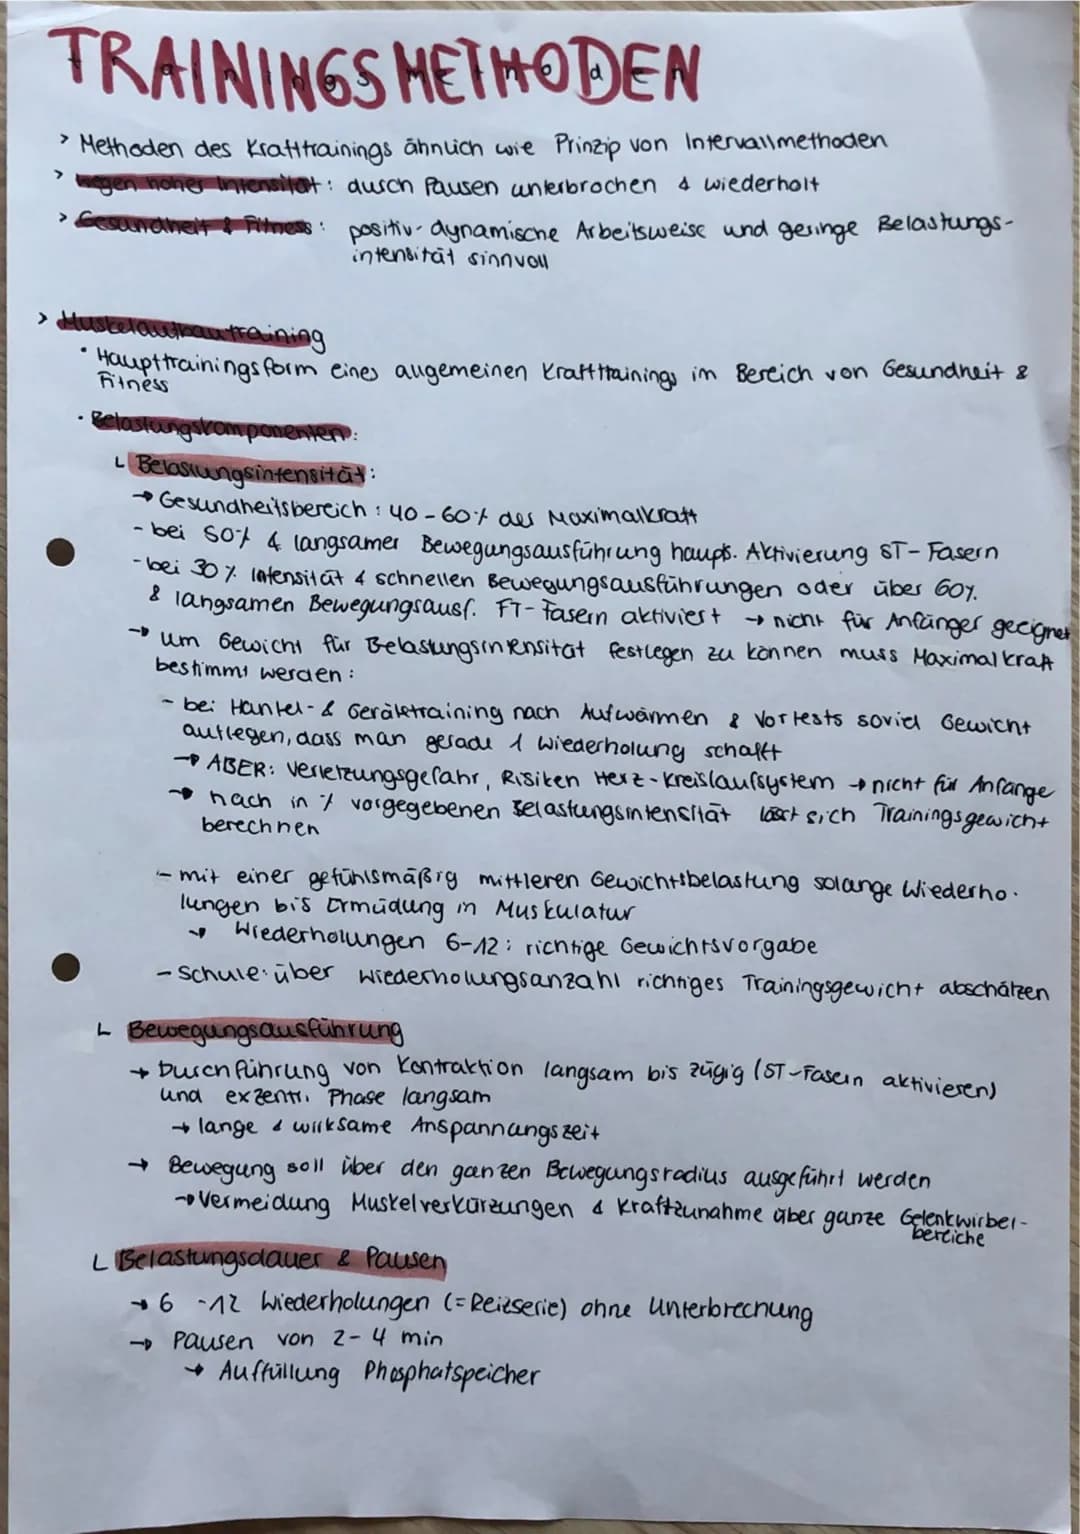 TRAININGSMETHODEN
> Methoden des Krafttrainings ähnlich wie Prinzip von Intervallmethoden
> wegen hoher Intensität: durch Pausen unterbrochen & wiederholt
> Gesundheit & Fitness: positiv-dynamische Arbeitsweise und geringe Belastungs-
intensität sinnvoll
> Muskelaufbautraining
• Haupttrainingsform eines allgemeinen Krafttrainings im Bereich von Gesundheit &
Fitness
• Belastungskomponenten:
L Belastungsintensität:
→ Gesundheitsbereich: 40-60% der Maximalkraft
- bei 50% & langsamer Bewegungsausführung haupts. Aktivierung ST-Fasern
- bei 30% Intensität & schnellen Bewegungsausführungen oder über 60%
& langsamen Bewegungsausf. FT-Fasern aktiviert → nicht für Anfänger geeignet
→ um Gewicht für Belastungsintensität festlegen zu können muss Maximalkraft
bestimmt werden:
- bei Hantel- & Gerätetraining nach Aufwärmen & Vortests soviel Gewicht
auflegen, dass man gerade 1 Wiederholung schafft
→ ABER: Verletzungsgefahr, Risiken Herz-Kreislaufsystem → nicht für Anfänge
→ nach in % vorgegebenen Belastungsintensität lässt sich Trainingsgewicht
berechnen
- mit einer gefühlsmäßig mittleren Gewichtsbelastung solange Wiederho-
lungen bis Ermüdung in Muskulatur
→ Wiederholungen 6-12: richtige Gewichtsvorgabe
- Schule: über Wiederholungsanzahl richtiges Trainingsgewicht abschätzen
L Bewegungsausführung
→ Durchführung von Kontraktion langsam bis zügig (ST-Fasern aktivieren)
und exzentr. Phase langsam
→ lange & wirksame Anspannungszeit
→ Bewegung soll über den ganzen Bewegungsradius ausgeführt werden
→ Vermeidung Muskelverkürzungen & Kraftzunahme über ganze Gelenkwirbel-
bereiche
L Belastungsdauer & Pausen
→ 6 -12 Wiederholungen (=Reizserie) ohne Unterbrechung
→ Pausen von 2-4 min
→ Auffüllung Phosphatspeicher